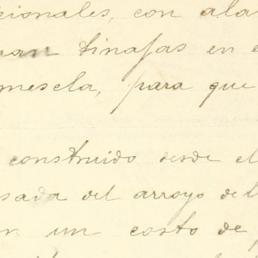 cionales, con ala
uan tinajas en e
mescla, para que
construido desde el
sada del arroyo de l
un costo de p